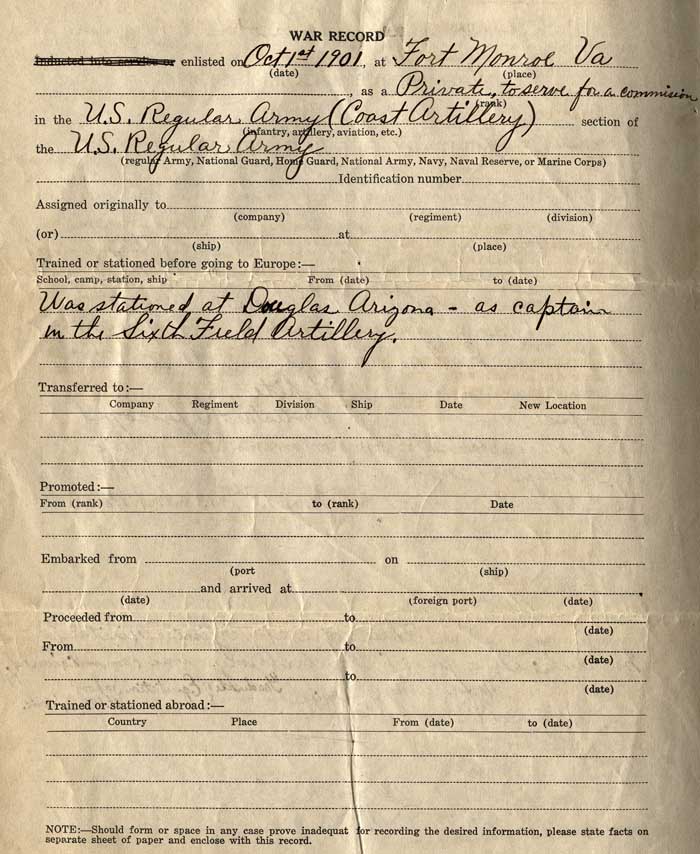 WAR RECORD
Inducted into service or enlisted on Oct 1st 1901, at Fort Monroe Va
(date) (place)
, as a Private, to serve for a commission
(rank)
in the U.S. Regular Army (Coast Artillery) section of
(infantry, artillery, aviation, etc.)
the U.S. Regular Army
(regular Army, National Guard, Home Guard, National Army, Navy, Naval Reserve, or Marine Corps)
Identification number
Assigned originally to
(company) (regiment) (division)
(or) at
(ship) (place)
Trained or stationed before going to Europe:—
School, camp, station, ship From (date) to (date)
Was stationed at Douglas Arizona - as captain
in the Sixth Field Artillery.
Transferred to:—
Company Regiment Division Ship Date New Location
Promoted:—
From (rank) to (rank) Date
Embarked from on
(port (ship)
and arrived at
(date) (foreign port) (date)
Proceeded from to
(date)
From to
(date)
to
(date)
Trained or stationed abroad:—
Country Place From (date) to (date)
NOTE:—Should form or space in any case prove inadequat for recording the desired information, please state facts on
separate sheet of paper and enclose with this record.